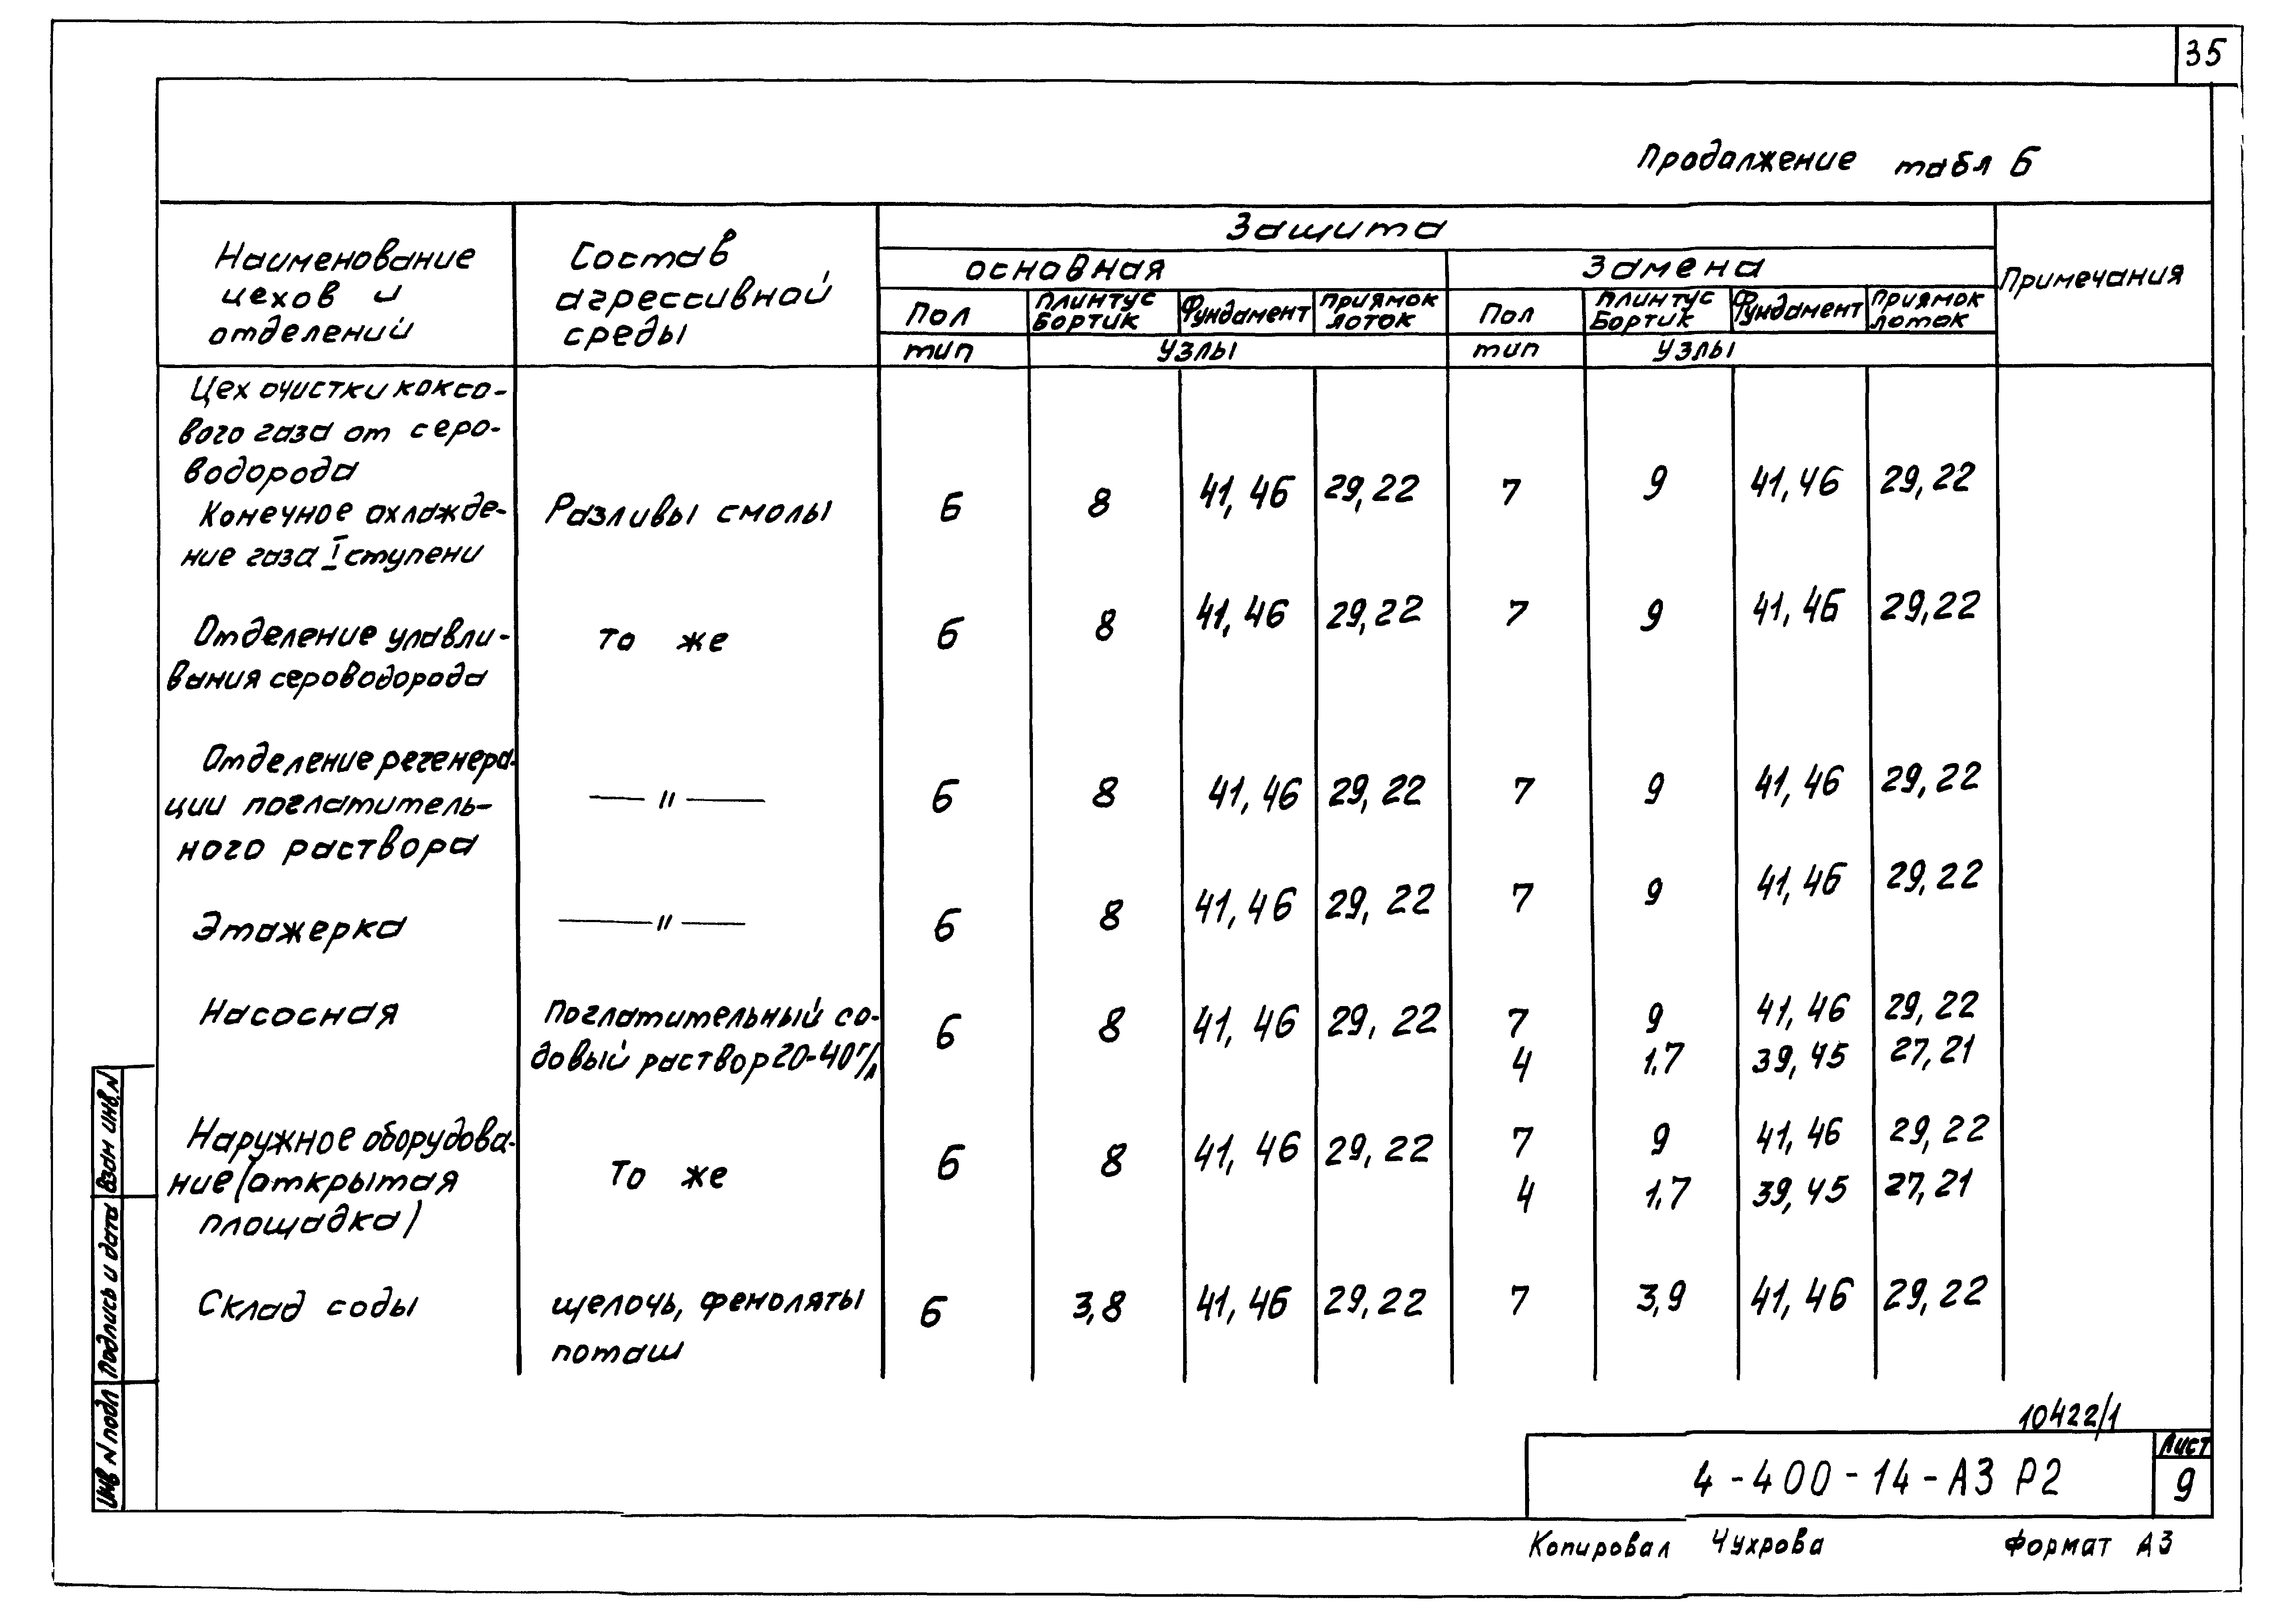 35
Продолжение табл 6
Наименование цехов и отделений
Состав агрессивной среды
Защита
Примечания
основная
Замена
Пол
Плинтус Бортик
Фундамент
Приямок лоток
Пол
Плинтус Бортик
Фундамент
Приямок лоток
тип
узлы
тип
узлы
Цех очистки коксо-
вого газа от серо-
водорода
Конечное охлажде-
ние газа I ступени
Разливы смолы
6 8 41, 46 29, 22 7 9 41, 46 29, 22
Отделение улавли-
вания сероводорода
То же
6 8 41, 46 29, 22 7 9 41, 46 29, 22
Отделение регенера-
ции поглотитель-
ного раствора
— " —
6 8 41, 46 29, 22 7 9 41, 46 29, 22
Этажерка
— " —
6 8 41, 46 29, 22 7 9 41, 46 29, 22
Насосная
Поглотительный со-
довый раствор 20-40 г/л
6 8 41, 46 29, 22 7 9 41, 46 29, 22
4 1.7 39, 45 27, 21
Наружное оборудова-
ние (открытая
площадка)
То же
6 8 41, 46 29, 22 7 9 41, 46 29, 22
4 1.7 39, 45 27, 21
Склад соды
щелочь, феноляты
поташ
6 3,8 41, 46 29, 22 7 3,9 41, 46 29, 22
Взам инв.N
Подпись и дата
Инв N подл
10422/1
4-400-14-А3 Р2
Лист
9
Копировал Чухрова Формат А3